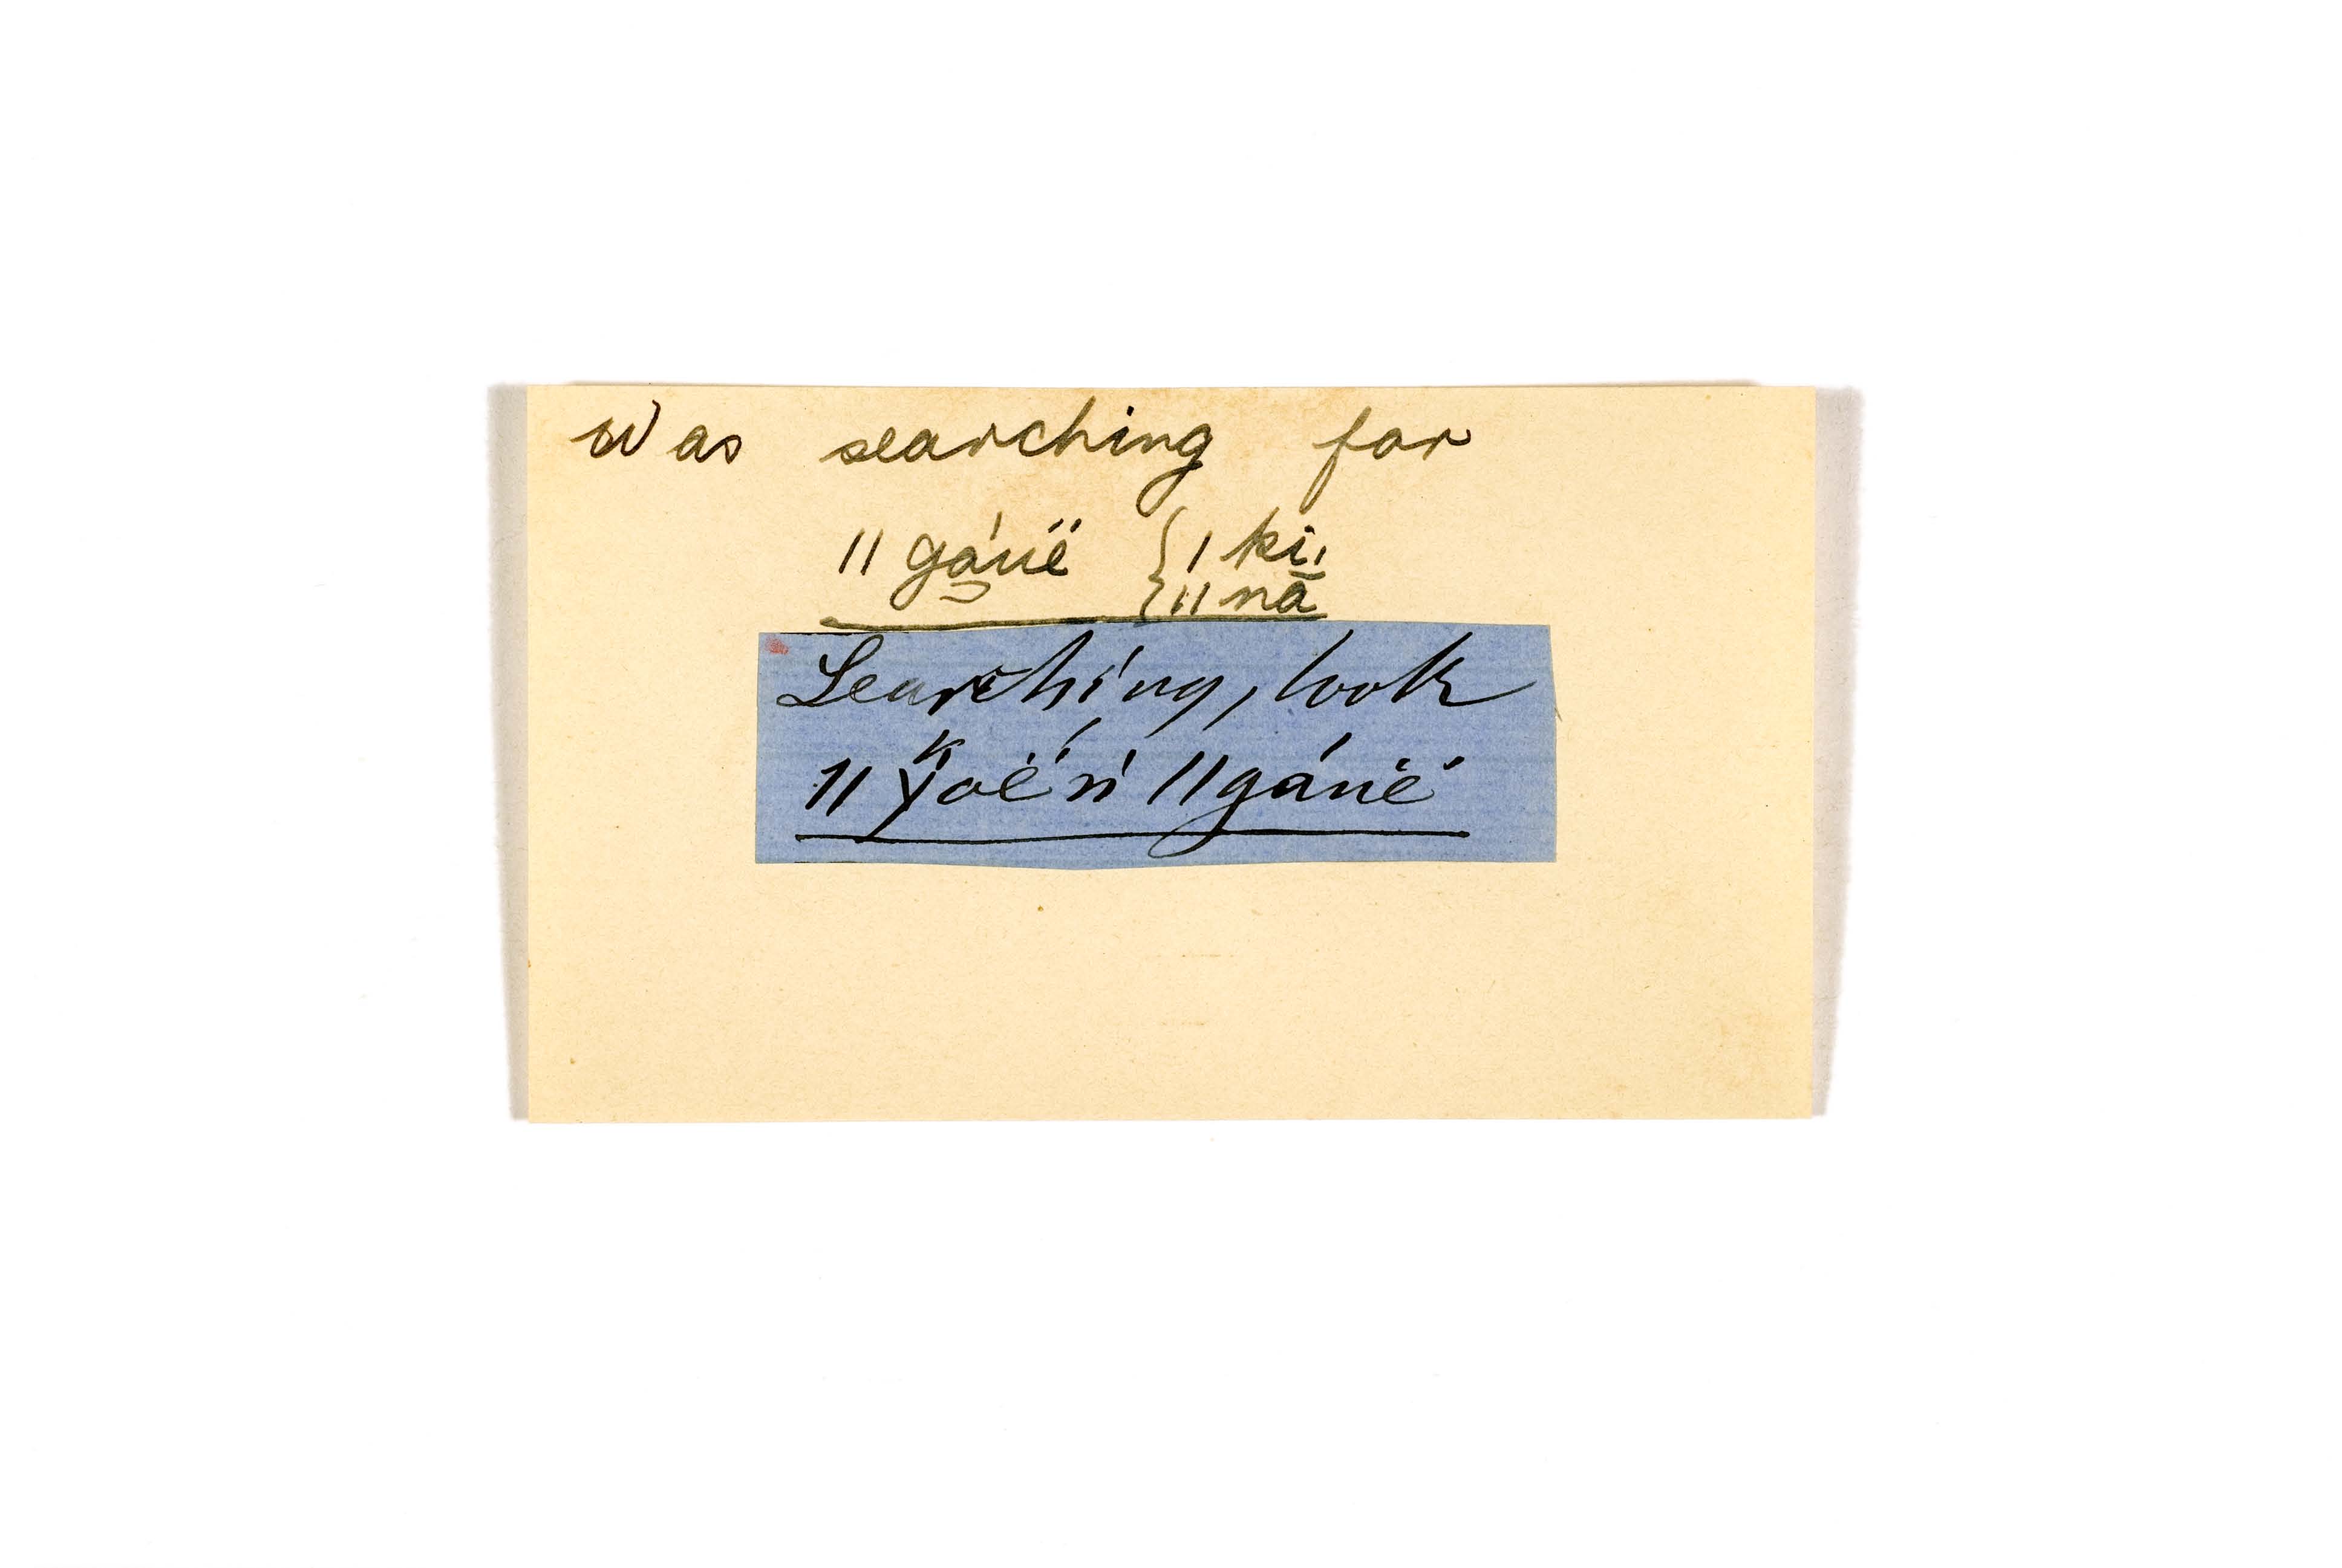 Was searching for
ǁ gáuë { ǀ ki
ǁ nā
Searching, look
ǁ ǁgáuë